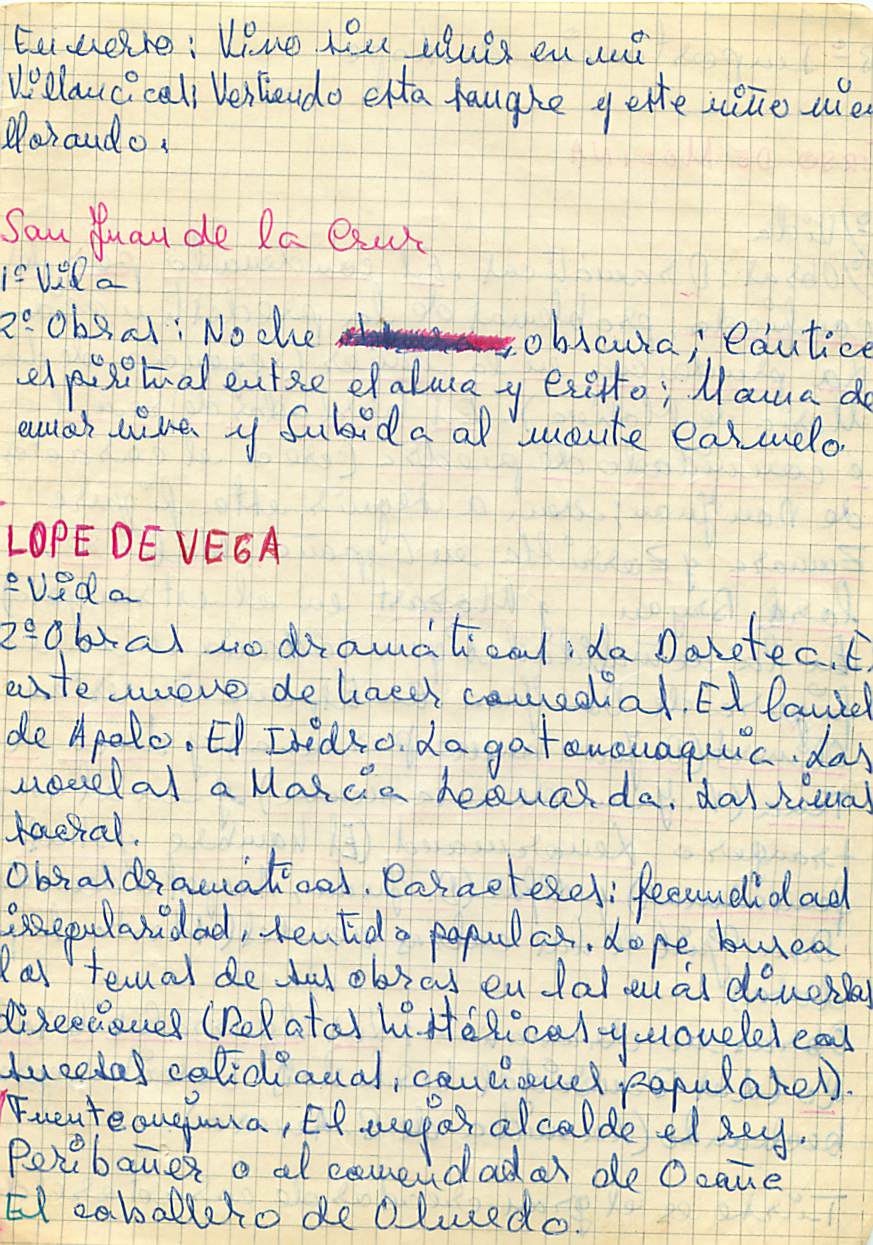 En verso: Vivo sin vivir en mi
Villancicos; Vertiendo esta sangre y este niño vie
llorando.
San Juan de la Cruz
1º Vida
2º Obras: Noche obscura; Cántico
espiritual entre el alma y Cristo; Llama de
amor viva y Subida al monte Carmelo.
LOPE DE VEGA
º Vida
2º Obras no dramáticas: La Dorotea. E
arte nuevo de hacer comedias. El laurel
de Apolo. El Isidro. La gatomaquia. Las
novelas a Marcia Leonarda. Las rimas
sacras.
Obras dramáticas. Caracteres: fecundidad
irregularidad, sentido popular. Lope busca
los temas de sus obras en las más diversas
direcciones (Relatos históricos y novelescos
sucesos cotidianos, canciones populares).
Fuenteovejuna, El mejor alcalde el rey.
Peribáñez o al comendador de Ocaña
El caballero de Olmedo.